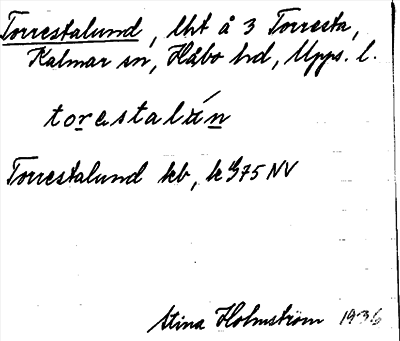 Torrestalund, lht å 3 Torresta,
Kalmar sn, Håbo hd, Upps. l.
torestalún
Torrestalund kb, k 975 NV
Stina Holmström 1936